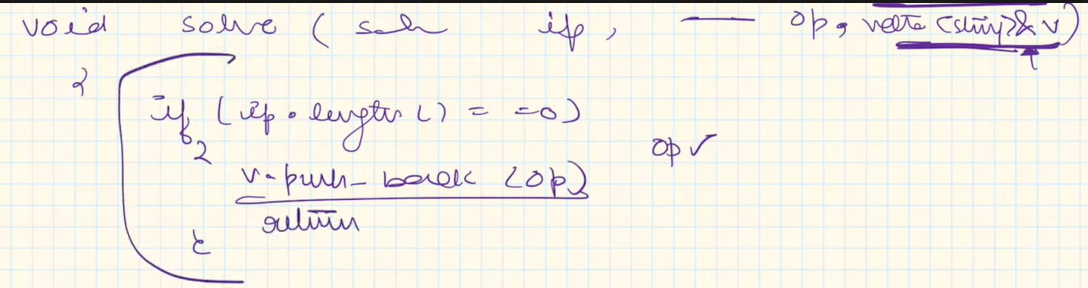 void solve ( ip, — op, vector <string>& v)
{
if (ip.length () = =0)
{ op ✓
v.push_back (op)
return
}